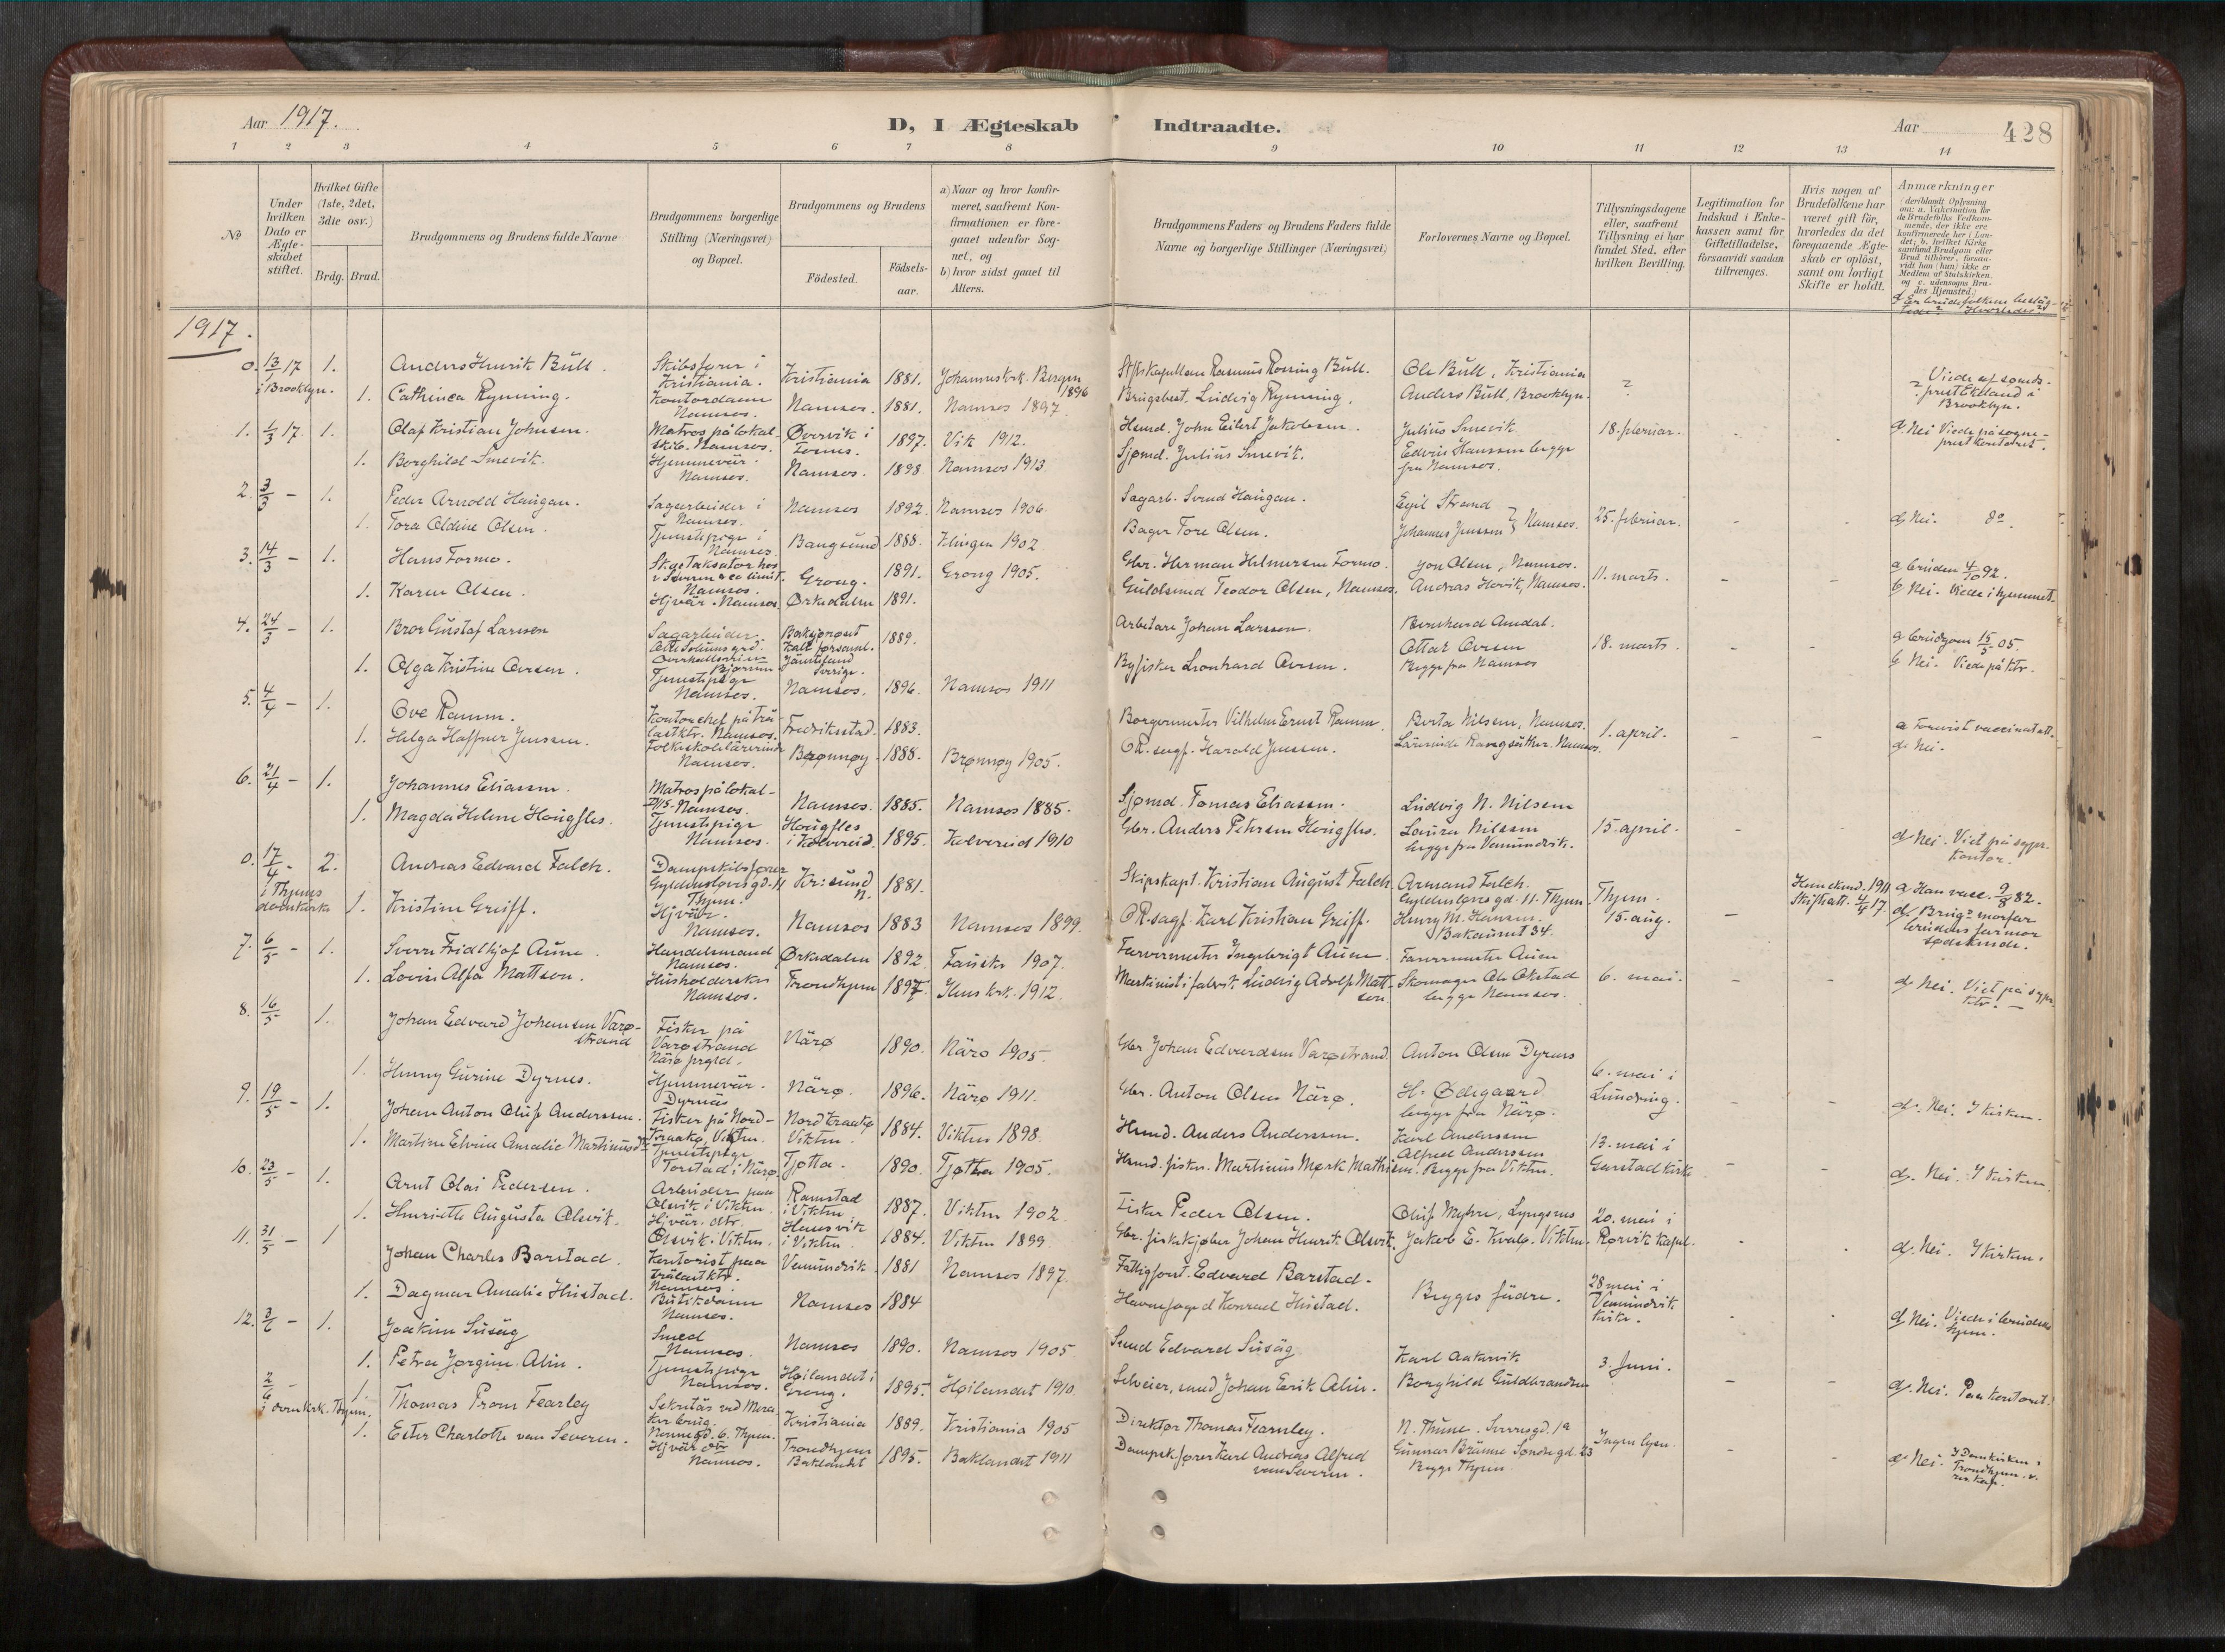 Aar 1917.
D, I Ægteskab
Indtraadte.
Aar
428
1 2 3 4 5 6 7 8 9 10 11 12 13 14
No
Under hvilken Dato er Ægteskabet stiftet.
Hvilket Gifte (1ste, 2det, 3die osv.)
Brdg. Brud.
Brudgommens og Brudens fulde Navne
Brudgommens borgerlige Stilling (Næringsvei) og Bopæl.
Brudgommens og Brudens
Födested.
Födselsaar.
a) Naar og hvor konfirmeret, saafremt Konfirmationen er foregaaet udenfor Sognet, og
b) hvor sidst gaaet til Alters.
Brudgommens Faders og Brudens Faders fulde Navne og borgerlige Stillinger (Næringsvei)
Forlovernes Navne og Bopæl.
Tillysningsdagene eller, saafremt Tillysning ei har fundet Sted, efter hvilken Bevilling.
Legitimation for Indskud i Enkekassen samt for Giftetilladelse, forsaavidt saadan tiltrænges.
Hvis nogen af Brudefolkene har været gift för, hvorledes da det foregaaende Ægteskab er oplöst, samt om lovligt Skifte er holdt.
Anmærkninger
1917.
0. 13/1 17 1. Anders Henrik Bull. Skibsfører i Kristiania. Kristiania 1881. Johanneskrk. Bergen 1896
i Brooklyn. 1. Cathinca Rynning. Kontordame Namsos. Namsos. 1881. Namsos 1897.
Stiftskapellan Rasmus Rosing Bull. Ole Bull, Kristiania
Brugsbest. Ludvig Rynning. Anders Bull, Brooklyn. ?
Brooklyn.
1. 1/3 17. 1. Olaf Kristian Johnsen. Matros på lokalskib. Namsos. Øvervik i Fosnes. 1897. Vik 1912.
1. Borghild Smevik. Hjemmevär. Namsos. Namsos. 1898 Namsos 1913
Husmd. John Eilert Jakobsen. Julius Smevik 18. februar.
Sjømd. Julius Smevik. Edvin Hanssen begge fra Namsos.
2. 3/3 - 1. Peder Arnold Haugan. Sagarbeider i Namsos. Namsos 1892. Namsos 1906
1. Tora Oldine Olsen. Tjenestepige i Namsos. Bangsund 1888. Klingen 1902
Sagarb. Svend Haugan. Egil Strand
Bager Tore Olsen. Johannes Jenssen } Namsos. 25. februar. d, Nei. do.
3. 14/3 - 1. Hans Formo. Namsos. Grong. 1891. Grong 1905.
1. Karen Olsen. Hjvär. Namsos. Ørkedalen 1891.
Gbr. Herman Hilmersen Formo. Jon Olsen, Namsos.
Guldsmed Teodor Olsen, Namsos. Andreas Hovik, Namsos. 11. marts. a bruden 4/10 92.
b Nei. Viede i hjemmet.
4. 24/3 - 1. Bror Gustaf Larsson Sagarbeider. Jämtland Sverige. 1889.
1. Olga Kristine Oversen. Tjenestepige Namsos. Namsos. 1896. Namsos 1911
Arbetare Johan Larsson. Bernhard Amdal.
Byfisker Leonhard Oversen. Ottar Oversen Begge fra Namsos 18. marts. a brudgom 15/5 05.
b Nei. Viede på ktr.
5. 4/4 - 1. Ove Ramm. Fredriksstad. 1883.
1. Helga Haffner Jenssen. Folkeskolelärerinde Namsos. Brønnøy 1888. Brønnøy 1905.
Borgermester Vilhelm Ernst Ramm. Berta Nilsen, Namsos. 1. april.
OR. sagf. Harald Jenssen. d. Nei.
6. 21/4 - 1. Johannes Eliassen. Matros på lokal- D/S. Namsos. Namsos. 1885. Namsos 1885.
1. Magda Helene Hougfles. Tjenestepige Namsos. Hougfles i Kolvereid. 1895. Kolvereid 1910
Sjømd. Tomas Eliassen. Ludvig N. Nilsen
Gbr. Anders Petersen Hougfles. Laura Nilssen begge fra Vemundvik. 15. april. d. Nei. Viet på sgpr. kontor.
0. 17/4 - 2. Andreas Edvard Falch. Dampskibsfører Gyldenløvesgd. 11 Thjem. Kr:sund N. 1881.
i Thjems domkirke 1. Kristine Greiff. Hjvär. Namsos. Namsos 1883 Namsos 1899.
Skipskapt. Kristian August Falch. Armand Falch. Gyldenløvesgd. 11. Thjem
OR. sagf. Karl Kristian Greiff. Henry M. Hansen. Bakaunet 34. Thjem. 15. aug.
a Han vacc. 9/8 82.
d Brudg. morfar brudens farmor sødskende.
7. 6/5 - 1. Sverre Fridthjof Aune. Handelsmand Namsos. Ørkedalen 1892 Fauske 1907.
1. Lovise Alfa Mattson. Husholderske Namsos. Trondhjem 1897. Ihlens krk. 1912.
Farvermester Ingebrigt Aune. Farvermester Aune
Maskinist i fabrik Ludvig Adolf Mattson Skomager Ole Okstad begge Namsos. 6. mai. d, Nei. Viet på sgpr. ktr.
8. 16/5 1. Johan Edvard Johansen Varøstrand Fisker på Varøstrand Närø prgld. Närø 1890. Närø 1905.
1. Henny Gurine Dyrnes. Hjemmevär. Dyrnäs Närø. 1896. Närø 1911.
Gbr Johan Edvardsen Varøstrand. Anton Olsen Dyrnes
Gbr. Anton Olsen Närø. H. Ødegaard begge fra Närø. 6. mai i Lundring. d. Nei. I kirken.
9. 19/5 - 1. Johan Anton Oluf Anderssen. Fisker på Nord-Kraakø, Vikten. Nord Kraakø Vikten. 1884. Vikten 1898.
1. Martine Elvine Amalie Martinusdtr Tjenestepige Torstad i Närø Tjøtta. 1890. Tjøtta 1905.
Husmd. Anders Anderssen. Karl Anderssen
Husmd. fisker. Martinus Mørk Mathisen. Alfred Anderssen Begge fra Vikten. 13. mai i Garstad kirke d. Nei. I kirken.
10. 23/5 - 1. Arnt Olai Pedersen. Arbeider paa Olsvik i Vikten. Ramstad i Vikten 1887. Vikten 1902.
1. Henriette Augusta Olsvik. Hjvär. dtr. Olsvik. Vikten. Hansvik i Vikten. 1884. Vikten 1899.
Fisker Peder Olsen. Oluf Myhre, Lyngsnes 20. mai i
Gbr. fiskekjøber Johan Henrik Olsvik. Jakob E. Kvalø. Vikten. Rørvik kapel. d. Nei. I kirken.
11. 31/5 - 1 Johan Charles Barstad. Kontorist paa trälastktr. Namsos. Vemundvik 1881 Namsos 1897.
1. Dagmar Amalie Hustad. Butikdame Namsos. Namsos 1884
Fattigforst. Edvard Barstad.
Havnefoged Konrad Hustad. Begges fädre. 28 mai i Vemundvik kirke. d. Nei. Viede i brudens hjem.
12. 3/6 - 1. Joakim Susäg Smed Namsos. Namsos 1890. Namsos 1905
1. Petra Jørgine Alin. Tjenestepige Namsos. Høilandet i Grong. 1895. Høilandet 1910.
Smed Edvard Susäg Karl Aakervik
Selveier, smed Johan Erik Alin. Borghild Guldbrandsen 3. Juni. d. Nei. Paa kontoret.
2/6 - 1. Thomas Prom Fearley Kristiania 1889. Kristiania 1905
i domkrk. Thjem. 1. Ester Charlotte van Severen. Hjvär dtr Namsos. Trondhjem Baklandet 1895. Baklandet 1911
Direktør Thomas Fearnley. N. Thune. Sverresgd. 1a
Dampsk.fører Karl Andreas Alfred van Severen. Begge Thjem Ingen lysn. d. Nei. I Domkirken i Trondhjem